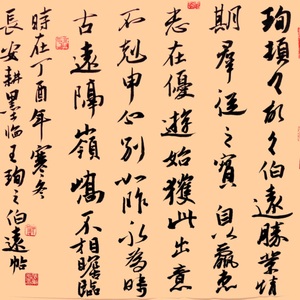 珣頓々首々伯遠勝業情
期羣從之寶自以羸患
志在優遊始獲此出意
不剋申分別如昨永為時
古遠隔嶺嶠不相瞻臨
時在丁酉年寒冬
長安耕墨臨王珣之伯遠帖